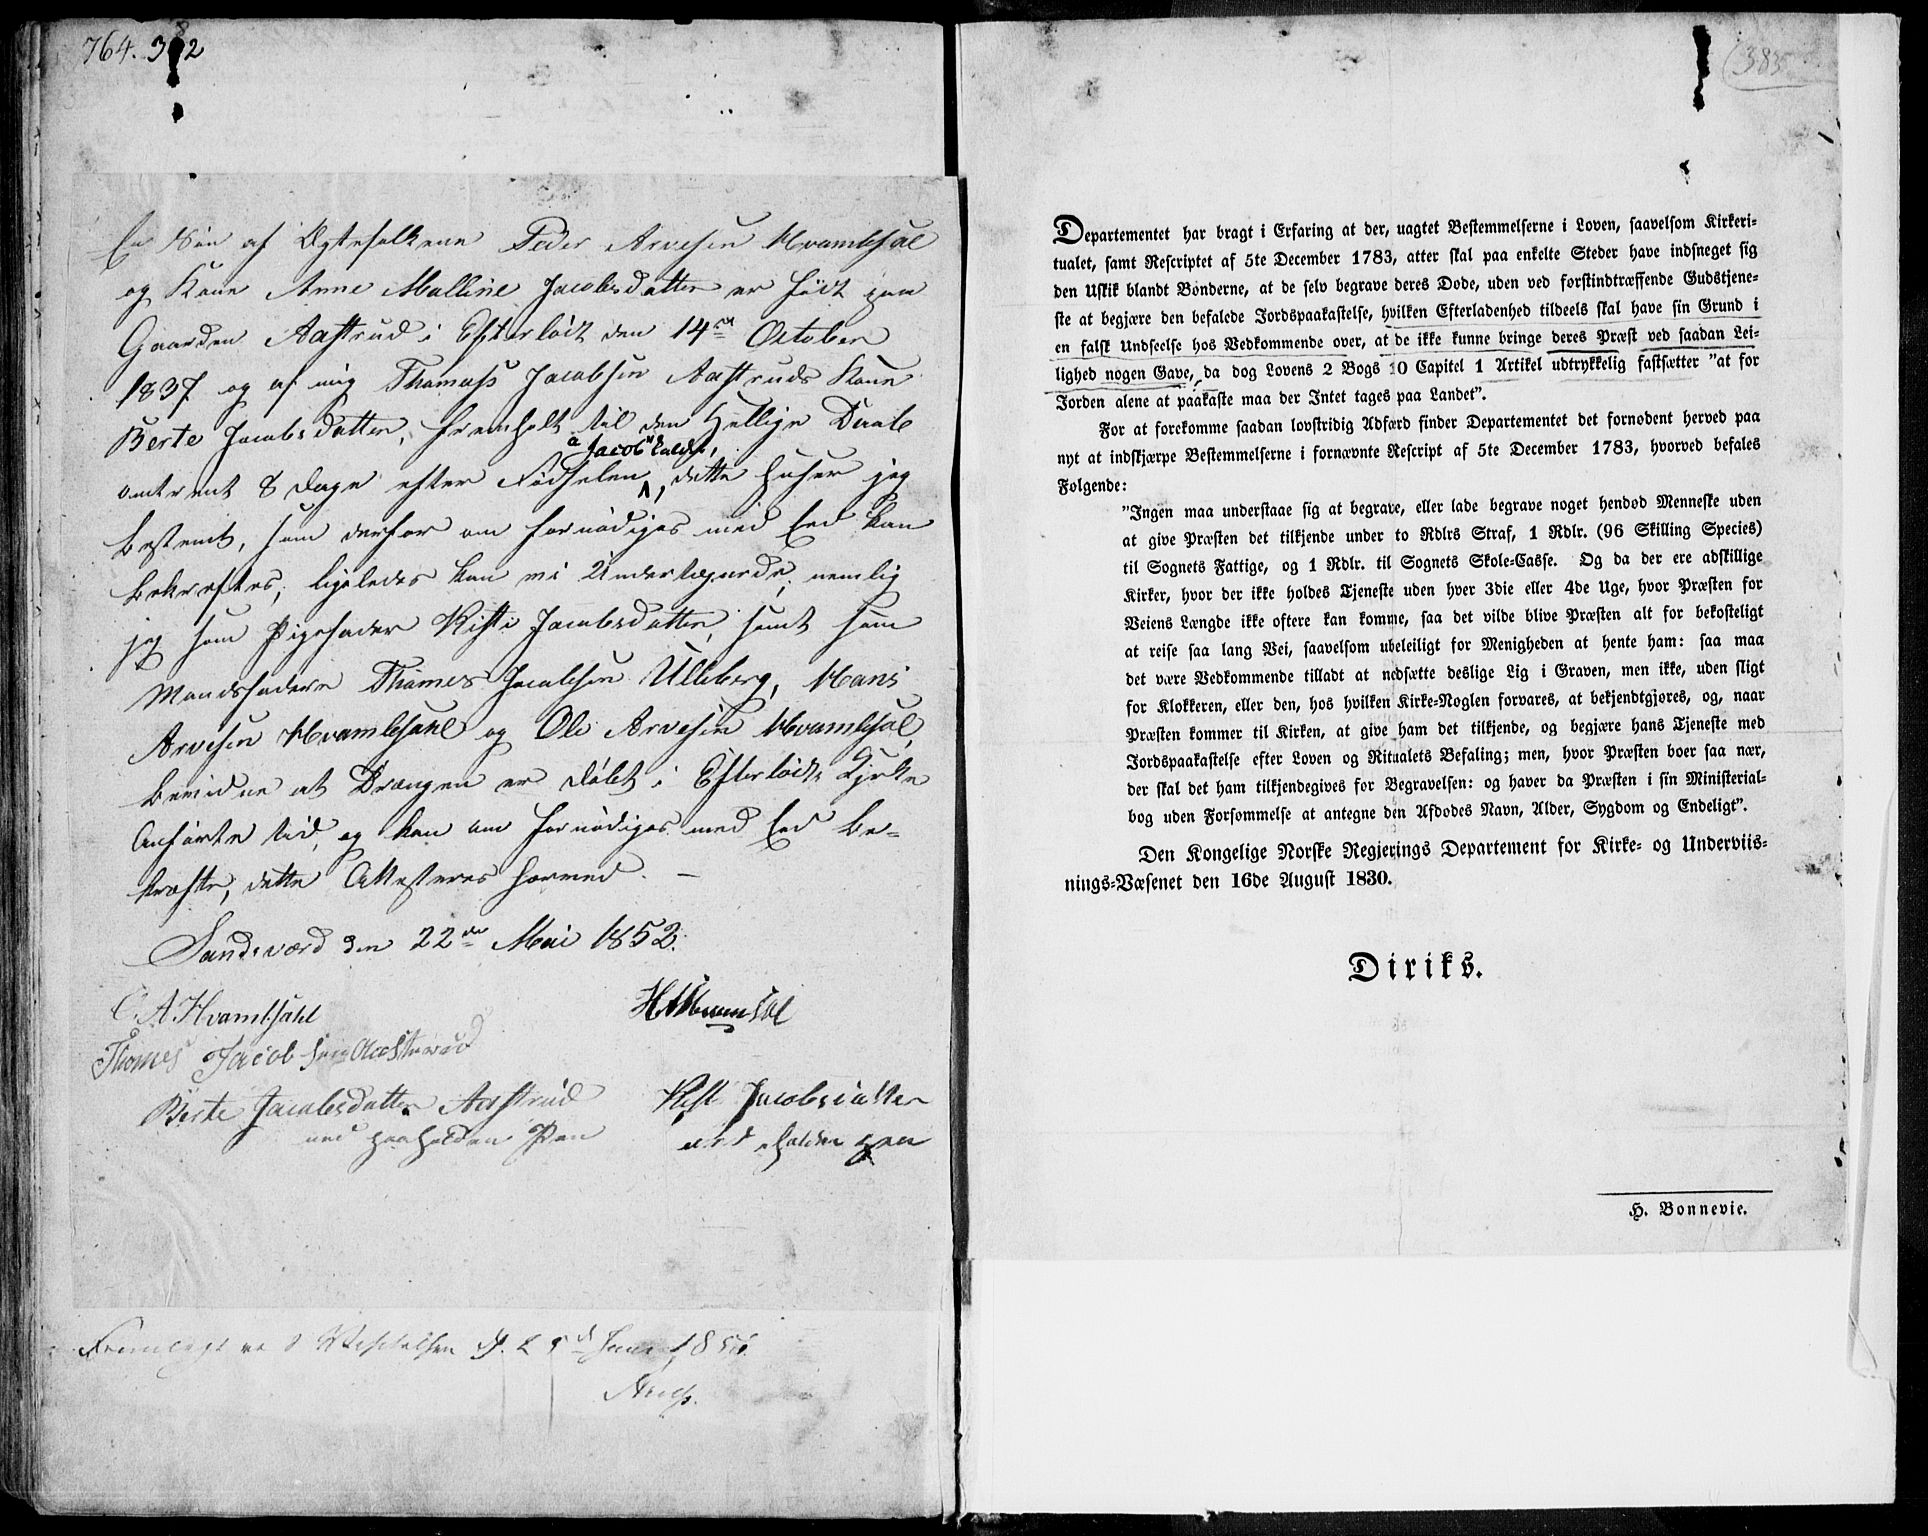 764. 382
En Søn af Ægtefolkene Peder Arvesen Hvambsal
og Kone Anne Malline Jacobsdatter er født paa
Gaarden Aastrud i Efterlødt den 14de October
1837 og af mig Thomas Jacobsen Aastruds Kone
Berte Jacobsdatter, fremholt til den Hellige Daab
Jacob kaldt,
omtrent 8 dage efter Fødselen, dette huser jeg
bestemt, som derfor om fornødiges med Eed kan
bekræftes; ligeledes kan vi Undertegnede, nemlig
jeg som Pigefader Kisti Jacobsdatter, samt som
Mandsfadere Thames Jacobsen Ulleberg, Hans
Arvesen Hvambsahl og Ole Arvesen Hvambsal,
bevidne at Drængen er døbt i Efterlødts Kjrke
Anførte tid, og kan om fornødiges med Eed be-
kræfte, dette Attesteres hermed. —
Sandsværd den 22de Mai 1852.
O. A. Hvambsahl
Thomes Jacobsen Aasterud
Berte Jacobsdatter Aastrud
med paaholden Pen
Kisti Jacobsdatter
med holden pen
(385
Departementet har bragt i Erfaring at der, uagtet Bestemmelserne i Loven, saavelsom Kirkeri-
tualet, samt Rescriptet af 5te December 1783, atter skal paa enkelte Steder have indsneget sig
den Uskik blandt Bønderne, at de selv begrave deres Døde, uden ved førstindtræffende Gudstjene-
ste at begjære den befalede Jordspaakastelse, hvilken Efterladenhed tildeels skal have sin Grund i
en falsk Undseelse hos Vedkommende over, at de ikke kunne bringe deres Præst ved saadan Lei-
lighed nogen Gave, da dog Lovens 2 Bogs 10 Capitel 1 Artikel udtrykkelig fastsætter "at for
Jorden alene at paakaste maa der Intet tages paa Landet".
For at forekomme saadan lovstridig Adfærd finder Departementet det fornødent herved paa
nyt at indskjærpe Bestemmelserne i fornævnte Rescript af 5te December 1783, hvorved befales
Følgende:
"Ingen maa understaae sig at begrave, eller lade begrave noget hendød Menneske uden
at give Præsten det tilkjende under to Rdlrs Straf, 1 Rdlr. (96 Skilling Species)
til Sognets Fattige, og 1 Rdlr. til Sognets Skole-Casse. Og da der ere adskillige
Kirker, hvor der ikke holdes Tjeneste uden hver 3die eller 4de Uge, hvor Præsten for
Veiens Længde ikke oftere kan komme, saa det vilde blive Præsten alt for bekosteligt
at reise saa lang Vei, saavelsom ubeleiligt for Menigheden at hente ham: saa maa
det være Vedkommende tilladt at nedsætte deslige Lig i Graven, men ikke, uden sligt
for Klokkeren, eller den, hos hvilken Kirke-Nøglen forvares, at bekjendtgjøres, og, naar
Præsten kommer til Kirken, at give ham det tilkjende, og begjære hans Tjeneste med
Jordspaakastelse efter Loven og Ritualets Befaling; men, hvor Præsten boer saa nær,
der skal det ham tilkjendegives før Begravelsen: og haver da Præsten i sin Ministerial-
bog uden Forsømmelse at antegne den Afdødes Navn, Alder, Sygdom og Endeligt".
Den Kongelige Norske Regjerings Departement for Kirke- og Underviis-
nings-Væsenet den 16de August 1830.
Diriks.
H. Bonnevie.